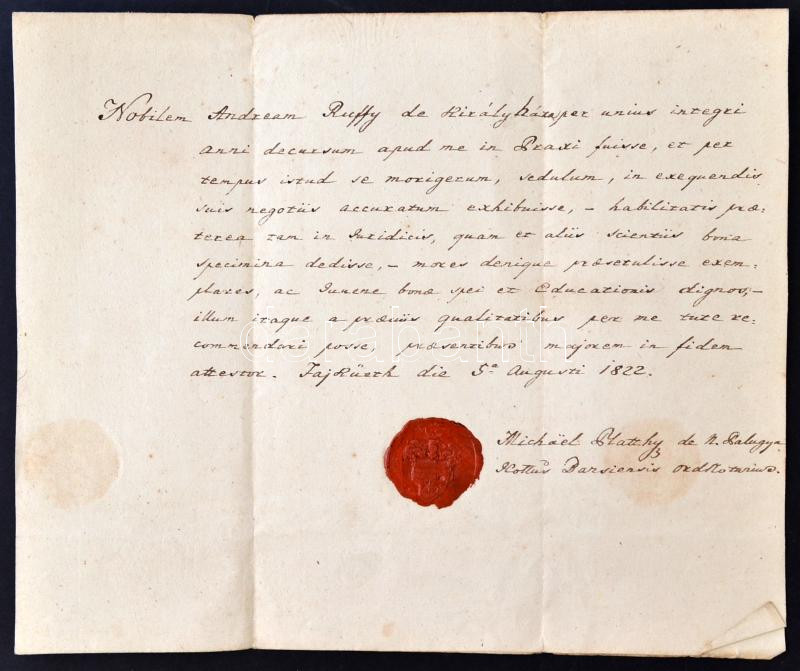 Nobilem Andream Ruffy de Királyháza per unius integri
anni decursum apud me in Praxi fuisse, et per
tempus istud se morigerum, sedulum, in exequendis
suis negotiis accuratum exhibuisse, – habilitatis præ=
terea tam in Juridicis, quam et aliis scientiis bona
specimina dedisse, – mores denique præsetulisse exem=
plares, ac Juvene bonæ spei et Educationis dignos, –
illum itaque a præviis qualitatibus per me tute re=
commendari posse, præsentibus majorem in fidem
attestor. Taj Kürth die 5ª Augusti 1822.
Michäel Platthy de N. Palugya
Cottus Barsiensis ord Notarius.
darabanth